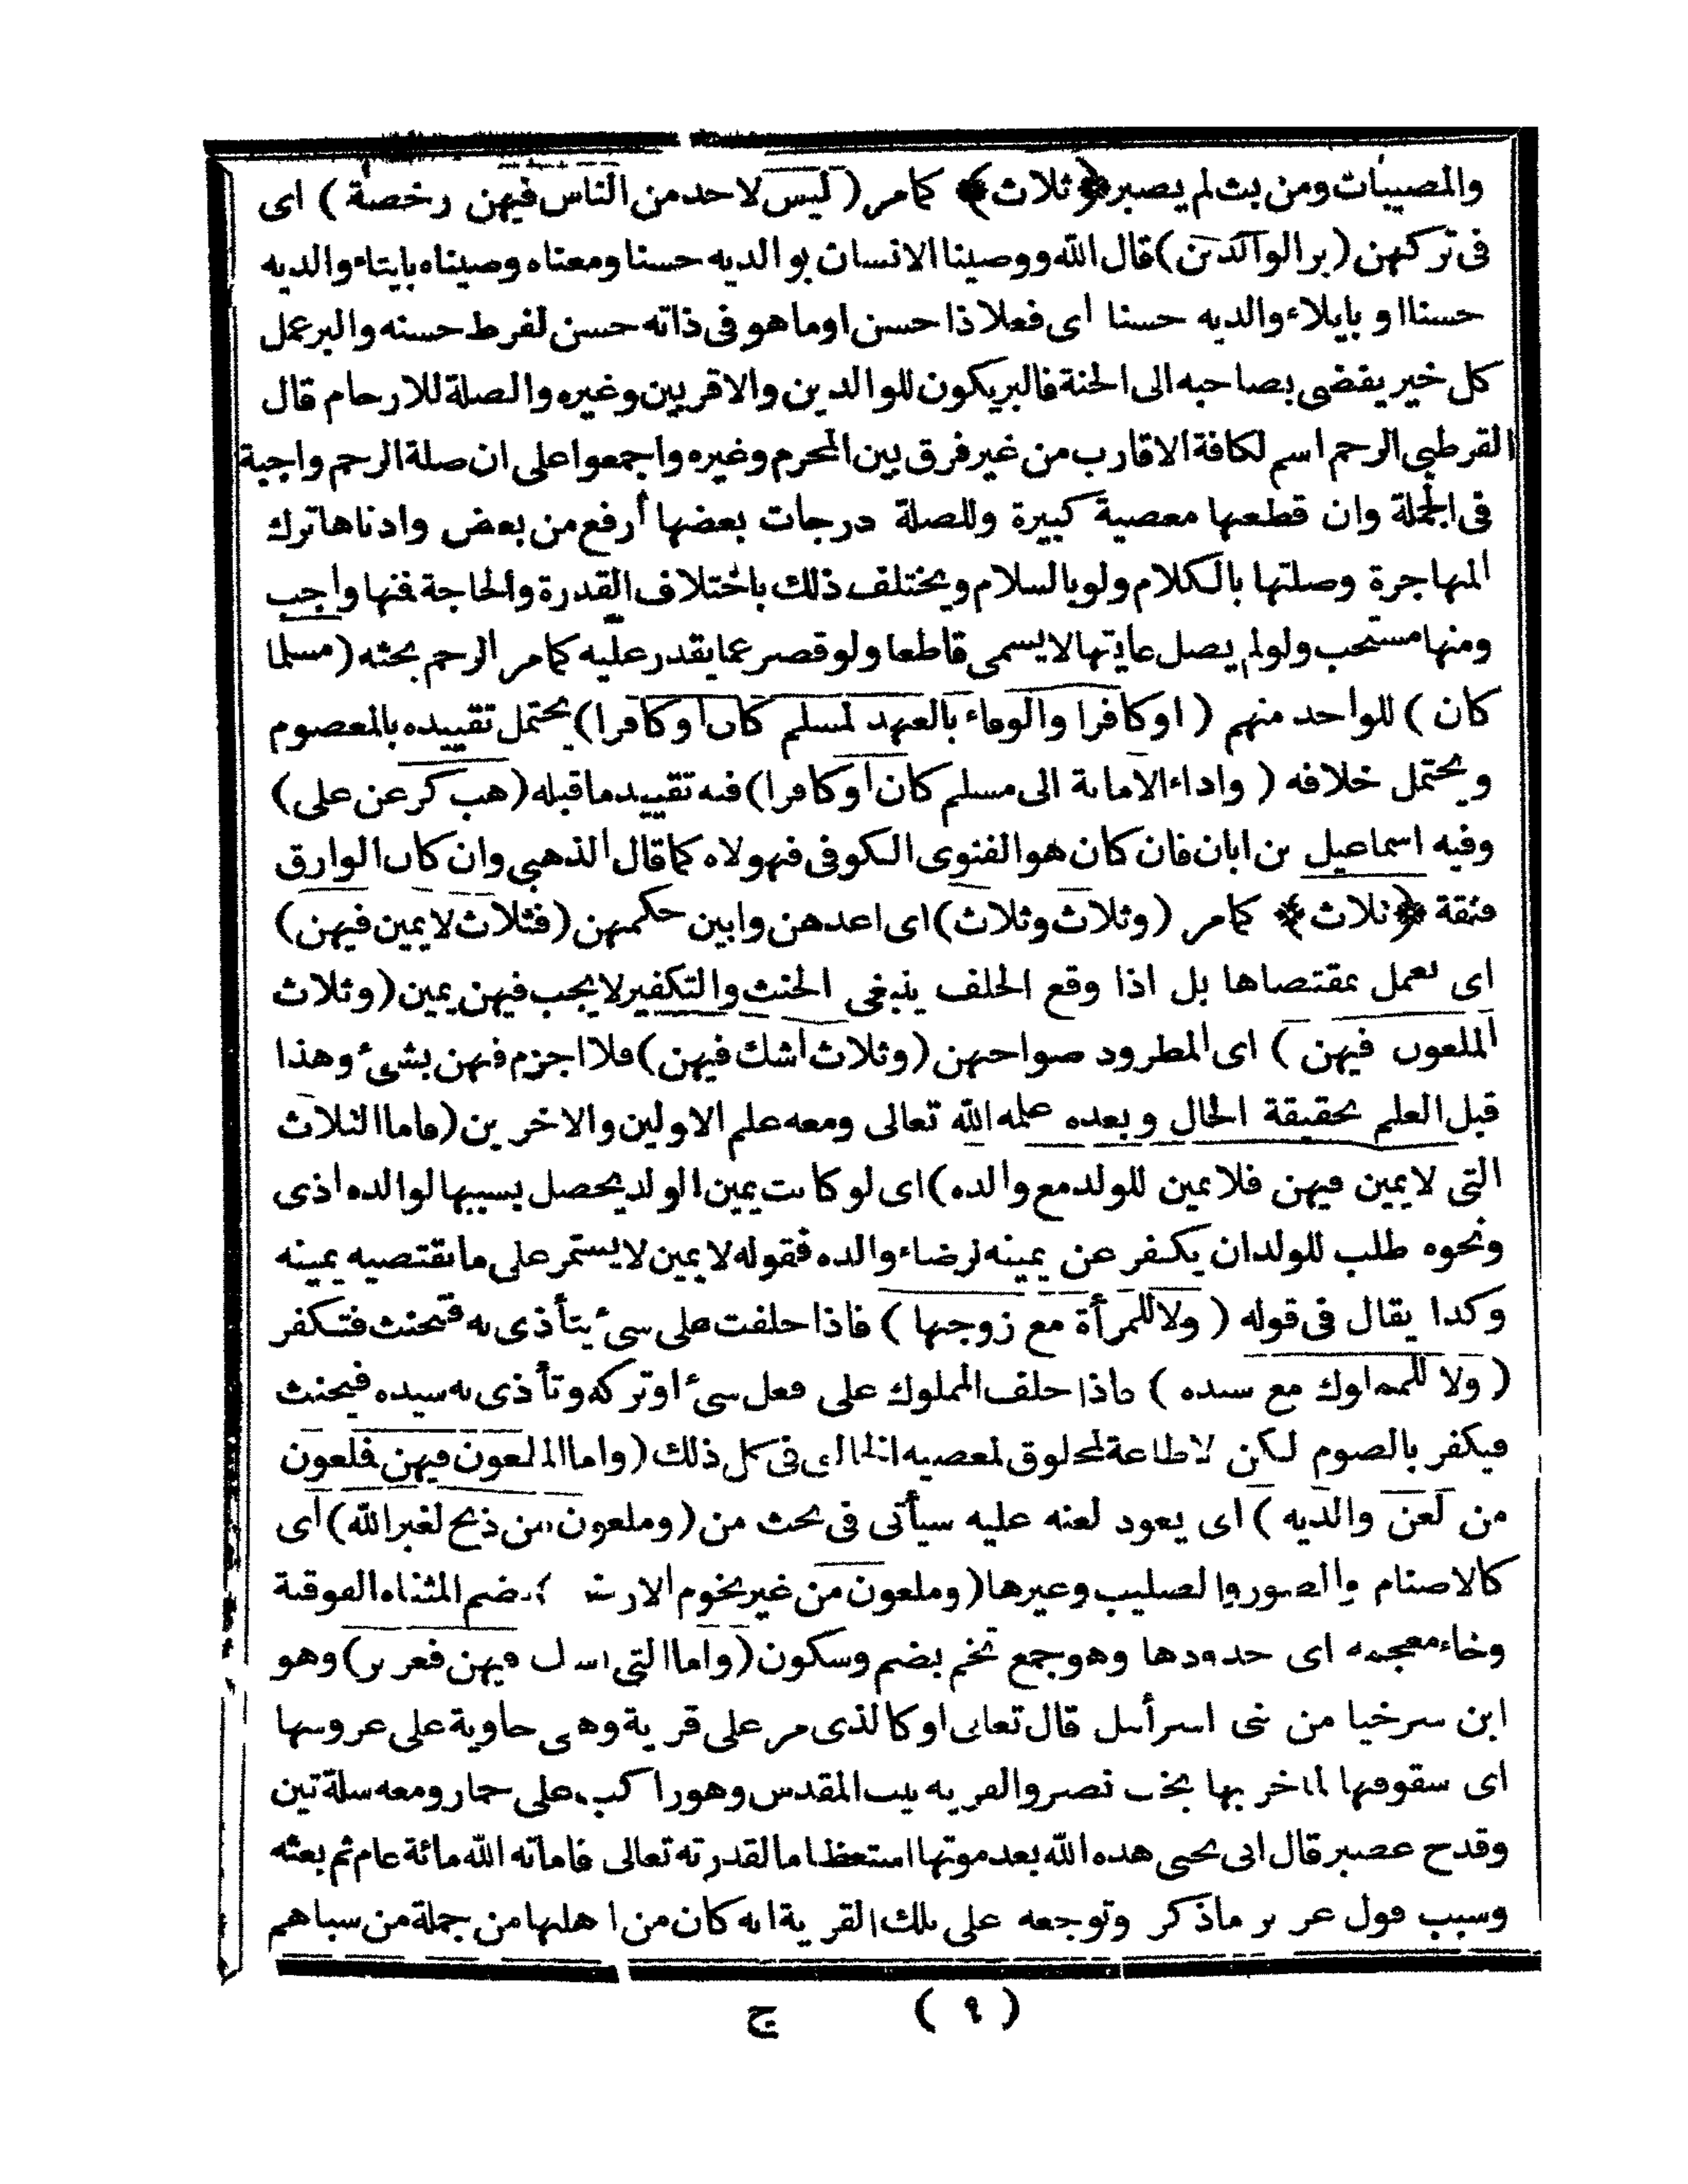 والمصيبات ومن بث لم يصبر ﴿ ثلاث ﴾ كامر ( ليس لاحد من الناس فيهن رخصة ) اى
فى تركهن ( بر الوالدين ) قال الله ووصينا الانسان بوالديه حسنا ومعناه وصيناه بايتاء والديه
حسنا او بايلاء والديه حسنا اى فعلا ذا حسن او ما هو فى ذاته حسن لفرط حسنه والبر عمل
كل خير يفضى بصاحبه الى الجنة فالبر يكون للوالدين والاقربين وغيره والصلة للارحام قال
القرطبى الرحم اسم لكافة الاقارب من غير فرق بين المحرم وغيره واجمعوا على ان صلة الرحم واجبة
فى الجملة وان قطعها معصية كبيرة وللصلة درجات بعضها أرفع من بعض وادناها ترك
المهاجرة وصلتها بالكلام ولو بالسلام ويختلف ذلك باختلاف القدرة والحاجة فمنها واجب
ومنها مستحب ولو لم يصل غايتها لا يسمى قاطعا ولو قصر عما يقدر عليه كمامر الرحم بحثه ( مسلما
كان ) للواحد منهم ( او كافرا والوفاء بالعهد لمسلم كان او كافرا ) يحتمل تقييده بالمعصوم
ويحتمل خلافه ( واداء الامانة الى مسلم كان او كافرا ) فيه تقييد ماقبله ( هب كر عن على )
وفيه اسماعيل بن ابان فان كان هو الغنوى الكوفى فهو لاه كما قال الذهبي وان كان الوارق
فثقة ﴿ ثلاث ﴾ كمامر ( وثلاث وثلاث ) اى اعدهن وابين حكمهن ( فثلاث لا يمين فيهن )
اى يعمل بمقتضاها بل اذا وقع الحلف ينبغى الحنث والتكفير لا يجب فيهن يمين ( وثلاث
الملعون فيهن ) اى المطرود صواحبهن ( وثلاث اشك فيهن ) فلا اجزم فيهن بشئ وهذا
قبل العلم بحقيقة الحال وبعده علمه الله تعالى ومعه علم الاولين والاخرين ( فاما الثلاث
التى لا يمين فيهن فلا يمين للولد مع والده ) اى لو كانت يمين الولد يحصل بسببها لوالده اذى
ونحوه طلب للولد ان يكفر عن يمينه لرضاء والده فقوله لا يمين لا يستمر على ما يقتضيه يمينه
وكذا يقال فى قوله ( ولا للمرأة مع زوجها ) فاذا حلفت على شئ يتأذى به فتحنث فتكفر
( ولا للمملوك مع سيده ) فاذا حلف المملوك على فعل شئ او تركه وتأذى به سيده فيحنث
فيكفر بالصوم لكن لا طاعة لمخلوق لمعصية الخالق فى كل ذلك ( واما الملعون فيهن فلعون
من لعن والديه ) اى يعود لعنه عليه سيأتى فى بحث من ( وملعون من ذبح لغير الله ) اى
كالاصنام والصور والصليب وغيرها ( وملعون من غير تخوم الارض ) بضم المثناه الفوقية
وخاء معجمه اى حدودها وهو جمع تخم بضم وسكون ( واما التى اشك فيهن فعزير ) وهو
ابن سرخيا من بنى اسرأيل قال تعالى او كالذى مر على قرية وهى خاوية على عروشها
اى سقوفها لما خربها بخت نصر والقريه بيت المقدس وهو راكب على حمار ومعه سلة تين
وقدح عصير قال انى يحيى هذه الله بعد موتها استعظاما لقدرته تعالى فاماته الله مائة عام ثم بعثه
وسبب قول عزير ماذكر وتوجعه على تلك القرية انه كان من اهلها من جملة من سباهم
( ٩ ) ج